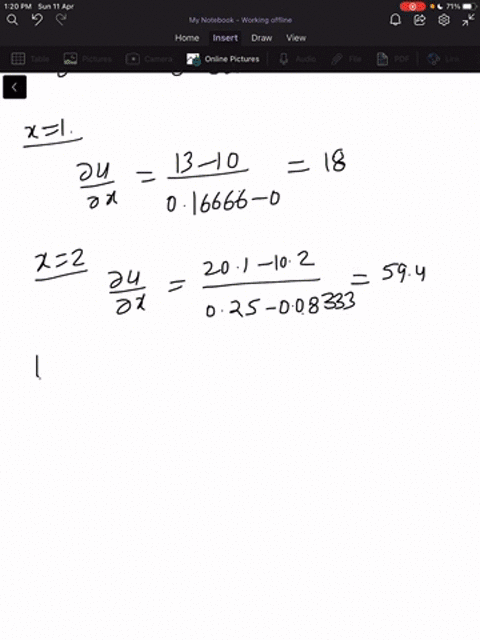 1:20 PM Sun 11 Apr
71%
My Notebook - Working offline
Home Insert Draw View
Table Pictures Camera Online Pictures Audio File PDF Link
x=1.
∂u/∂x = 13-10/0.16666-0 = 18
x=2
∂u/∂x = 20.1-10.2/0.25-0.08333 = 59.4